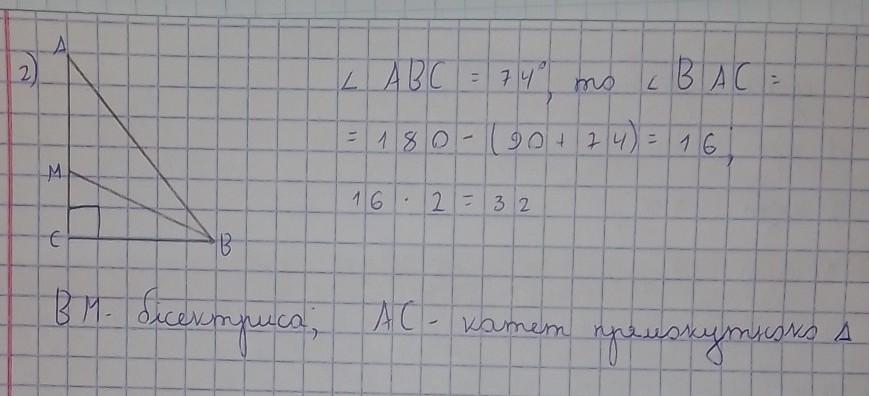 2)
A
M
C
B
∠ ABC = 74°, то ∠ BAC =
= 180 - (90 + 74) = 16;
16 · 2 = 32
BM - бісектриса; AC - катет прямокутного Δ